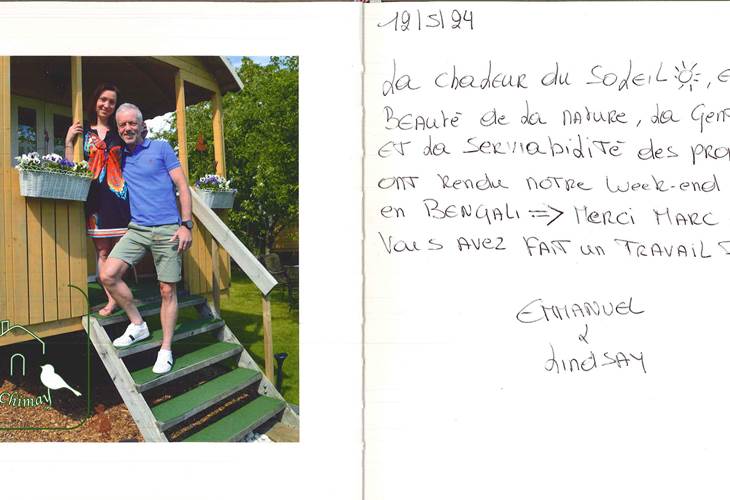 Chimay
12/5/24
La chaleur du soleil ☀, e
Beauté de la nature, la gen
et la serviabilité des prop
ont rendu notre week-end
en BENGALI => Merci MARC
Vous avez fait un travail
EMMANUEL
&
Lindsay